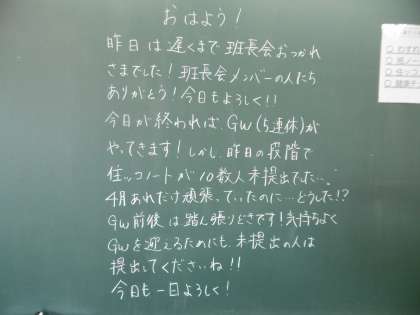 おはよう!
昨日は遅くまで班長会おつかれ
さまでした!班長会メンバーの人たち
ありがとう!今日もよろしく!!
今日が終われば、GW(5連休)が
やってきます!しかし、昨日の段階で
住ッコノートが10数人未提出でした…
4月あれだけ頑張っていたのに…どうした!?
GW前後は踏ん張りどきです!気持ちよく
GWを迎えるためにも、未提出の人は
提出してくださいね!!
今日も一日よろしく!